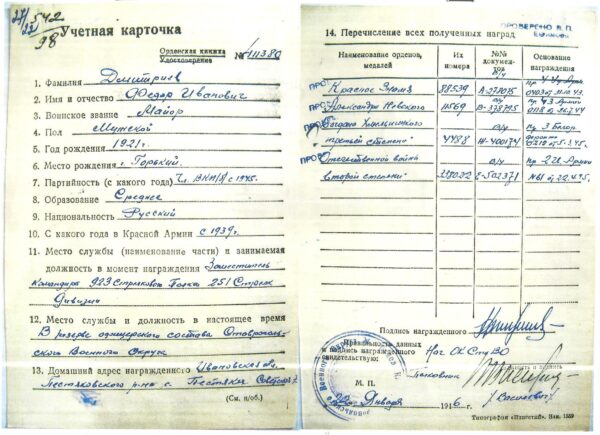 542
98
Учетная карточка
Орденская книжка
Удостоверение
№
1. Фамилия Дмитриев
2. Имя и отчество Федор Иванович
3. Воинское звание Майор
4. Пол Мужской
5. Год рождения 1921 г.
6. Место рождения г. Горький
7. Партийность (с какого года) Чл. ВКП/б/ с 1945.
8. Образование Среднее
9. Национальность Русский
10. С какого года в Красной Армии с 1939 г.
11. Место службы (наименование части) и занимаемая
должность в момент награждения Заместитель
Командира 923 Стрелкового Полка 251 Стрелк
Дивизии
12. Место службы и должность в настоящее время
В резерве офицерского состава Ставрополь-
ского Военного Округа
13. Домашний адрес награжденного Ивановская обл.
Пестяковского р-на с. Пестяки
(См. н/об.)
ПРОВЕРЕНО В.П.
14. Перечисление всех полученных наград
Наименование орденов,
медалей
Их
номера
№№
докумен-
тов
Основание
награждения
Красное Знамя 88539
Александра Невского 43 Армии
Богдана Хмельницкого 3 Белор
третьей степени 4488 Н-400174
Отечественной войны
второй степени Е-502371 №61 от 22.4.45.
Подпись награжденного
Правильность данных
и подпись награжденного
свидетельствую:
Нач ОК СтВО
Полковник
М. П.
Января 1946 г.
Типография «Ппистай». Зак. 1559